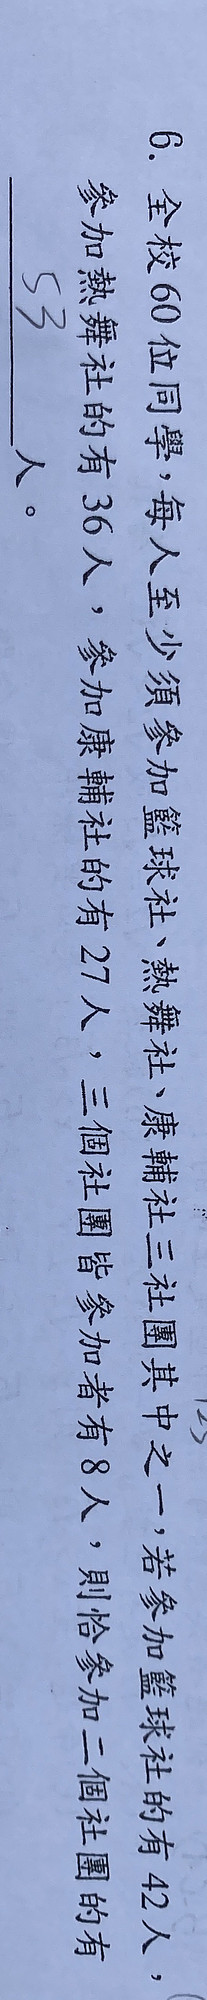 6. 全校60位同學，每人至少須參加籃球社、熱舞社、康輔社三社團其中之一，若參加籃球社的有42人，
參加熱舞社的有36人，參加康輔社的有27人，三個社團皆參加者有8人，則恰參加二個社團的有
53人。